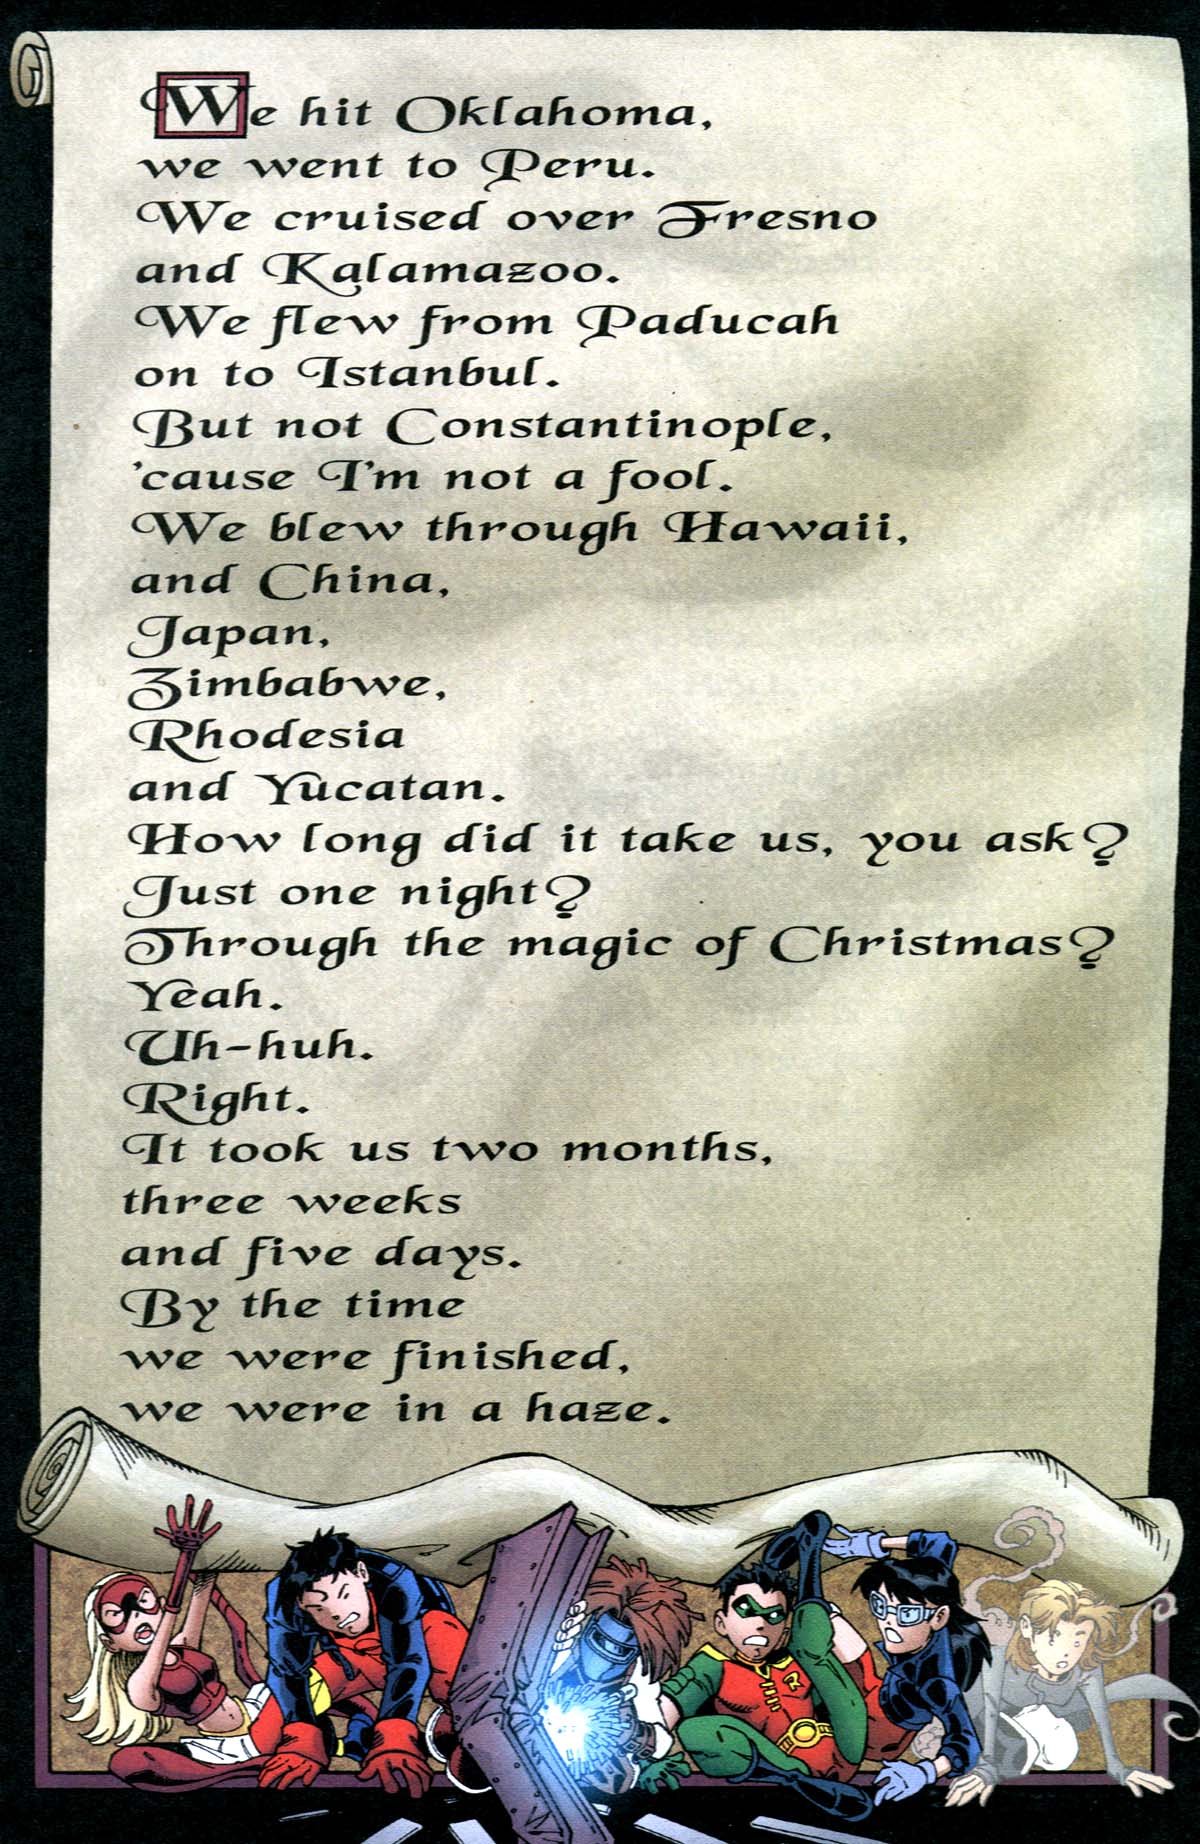 We hit Oklahoma,
we went to Peru.
We cruised over Fresno
and Kalamazoo.
We flew from Paducah
on to Istanbul.
But not Constantinople,
'cause I'm not a fool.
We blew through Hawaii,
and China,
Japan,
Zimbabwe,
Rhodesia
and Yucatan.
How long did it take us, you ask?
Just one night?
Through the magic of Christmas?
Yeah.
Uh-huh.
Right.
It took us two months,
three weeks
and five days.
By the time
we were finished,
we were in a haze.
R